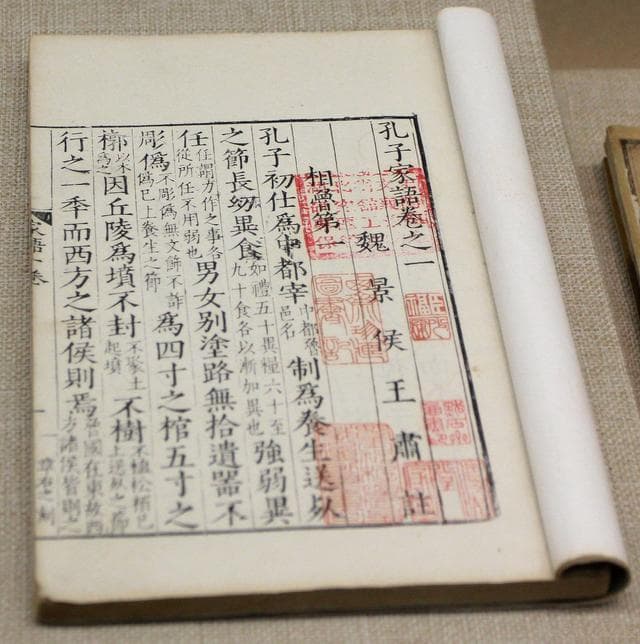 孔子家語卷之一
魏景侯王肅註
相魯第一
孔子初仕爲中都宰中都魯邑名制爲養生送死
之節長幼異食如禮五十異糧六十至九十食各以漸加異也強弱異
任任謂力作之事各從所任不用弱也男女別塗路無拾遺器不
彫僞不彫僞無文飾不詐僞已上養生之節爲四寸之棺五寸之
槨以木爲之因丘陵爲墳不封不聚土起墳不樹不植松栢已上送死之節
行之一秊而西方之諸侯則焉魯國在東故西方諸侯皆則之
家語一卷